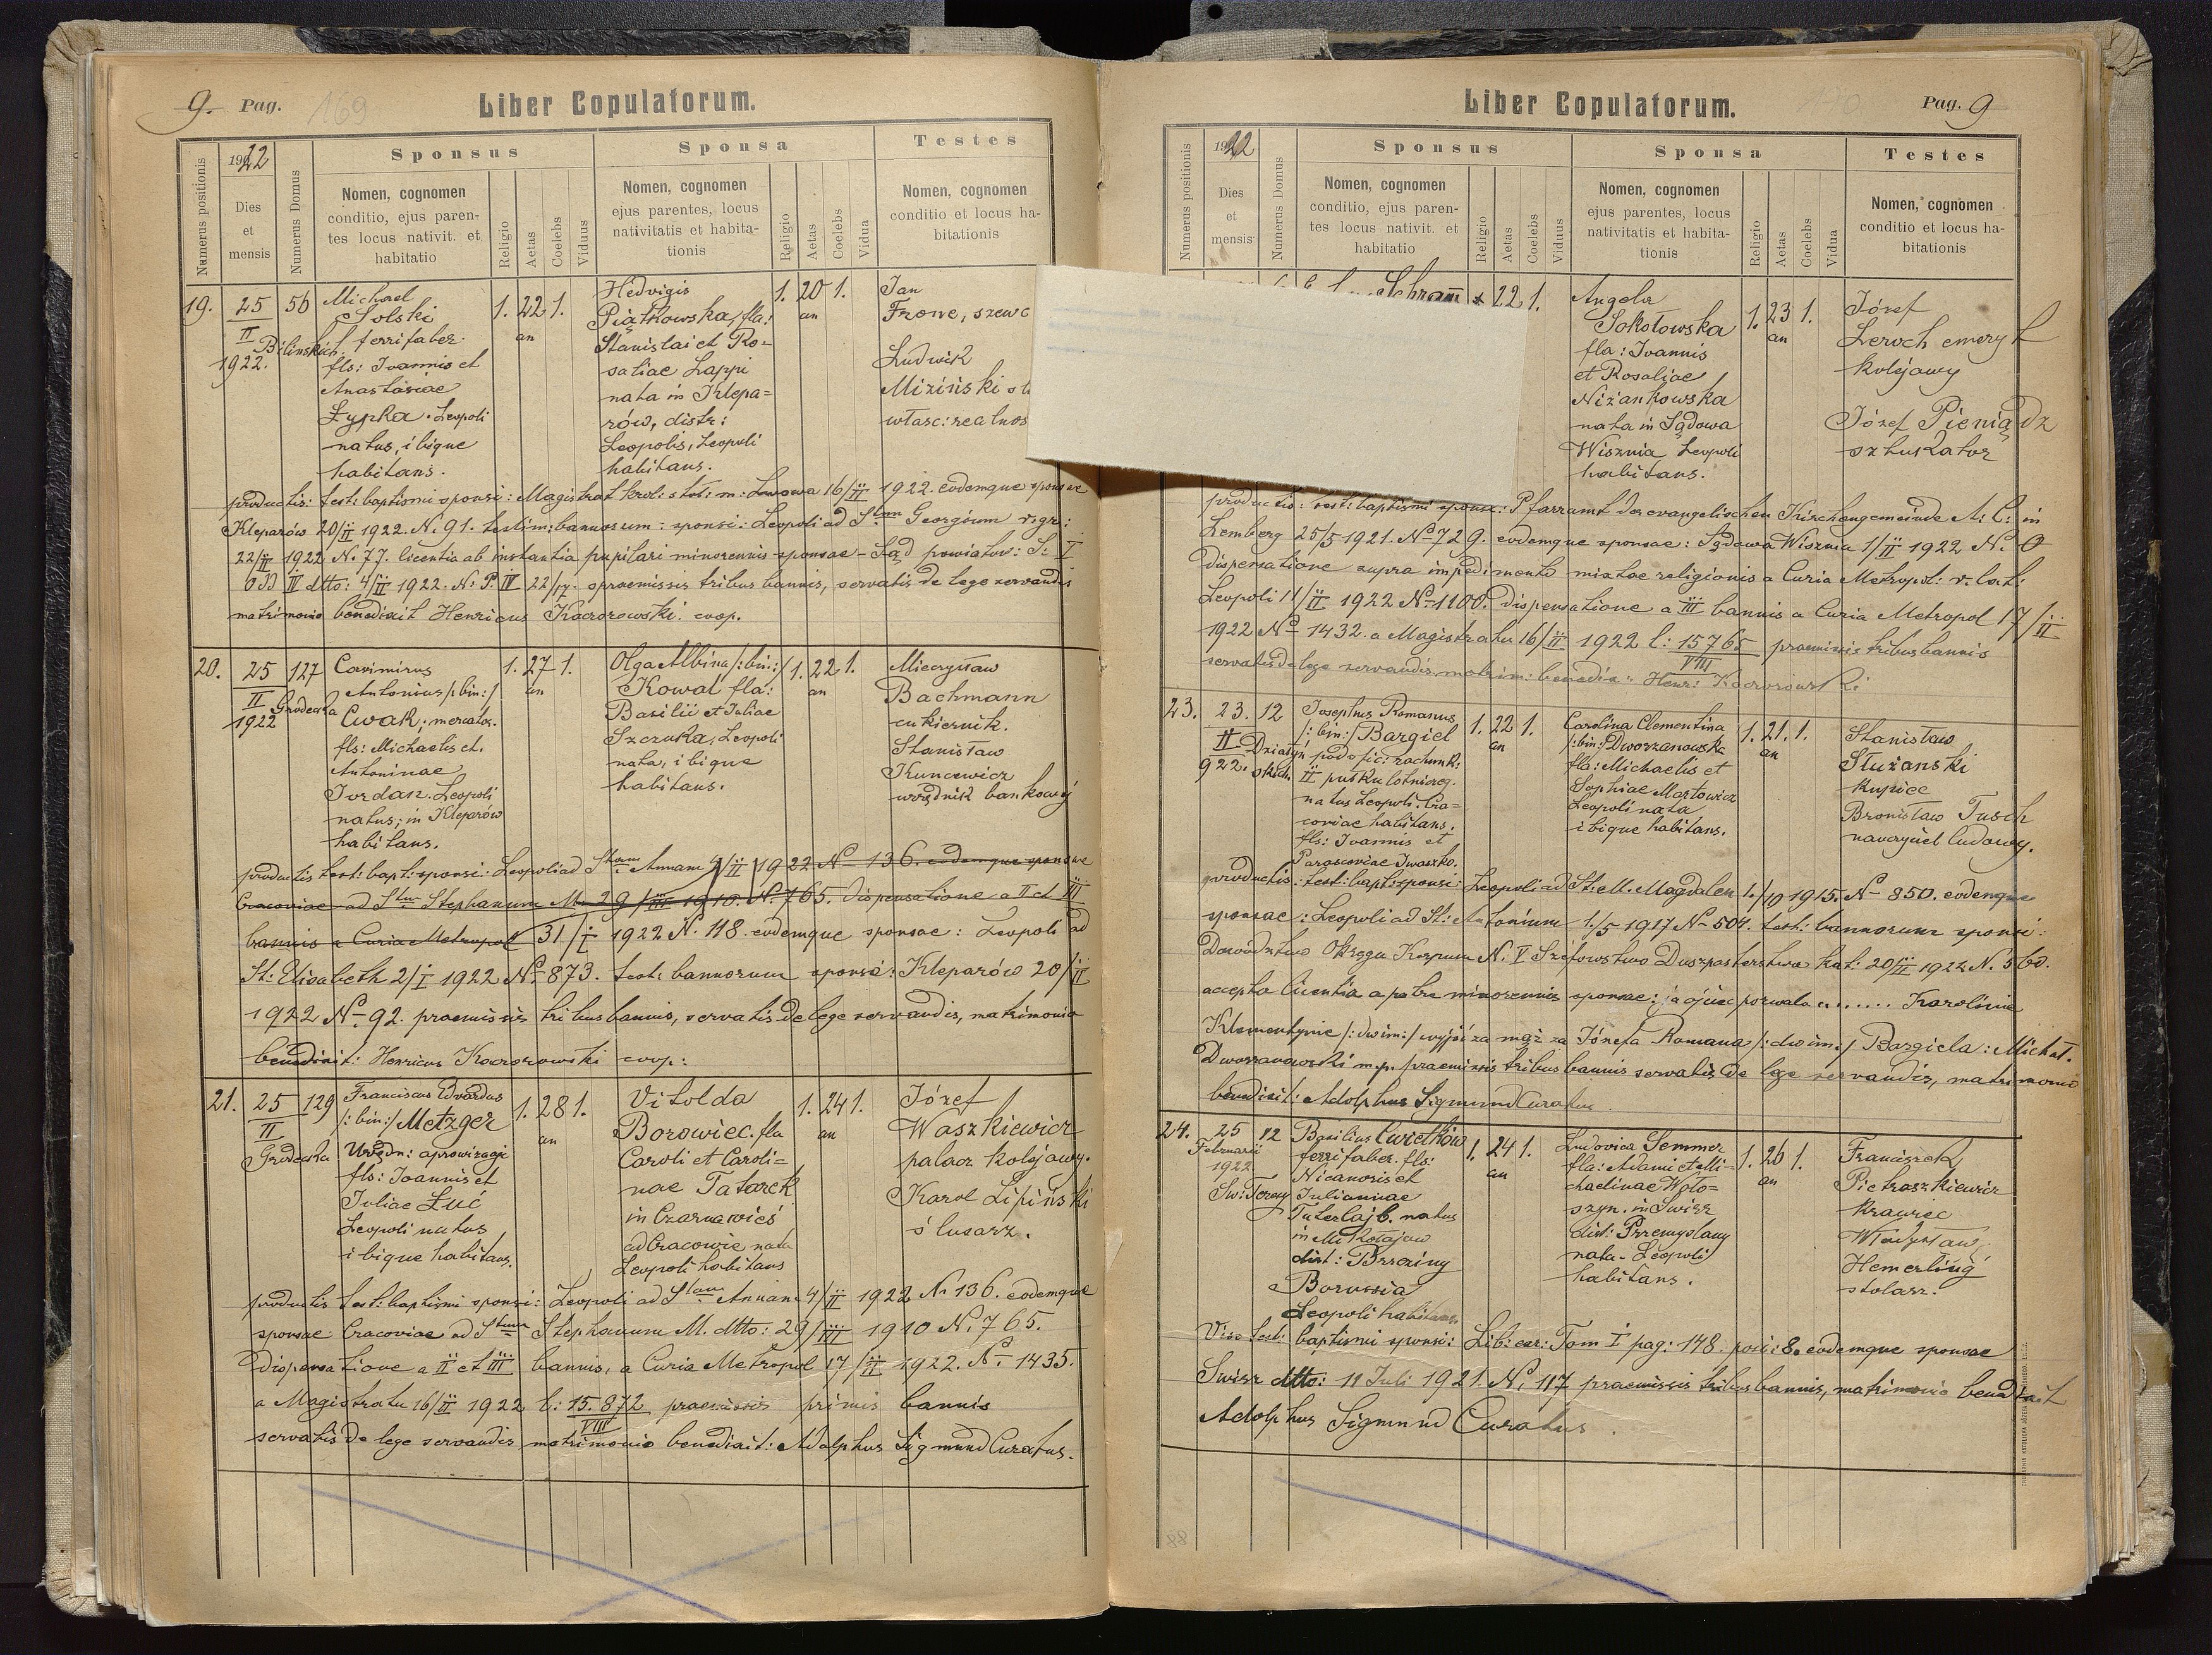 9. Pag. 169
Liber Copulatorum.
Numerus positionis
1922
Dies
et
mensis
Numerus Domus
Sponsus
Nomen, cognomen
conditio, ejus paren-
tes locus nativit. et
habitatio
Religio
Aetas
Coelebs
Viduus
Sponsa
Nomen, cognomen
ejus parentes, locus
nativitatis et habita-
tionis
Religio
Aetas
Coelebs
Vidua
Testes
Nomen, cognomen
conditio et locus ha-
bitationis
19.
25
II
1922.
56
Bilinskich
Michael
Solski
ferrifaber.
fls: Joannis et
Anastasiae
Łypka. Leopoli
natus, ibique
habitans.
1. 22 1.
an
Hedvigis
Piątkowska, fla:
Stanislai et Ro-
saliae Lappi
nata in Klepa-
rów, distr:
Leopolis, Leopoli
habitans.
1. 20 1.
an
Jan
Frone, szewc
Ludwik
Miziński
właśc: realnoś
productis: test: baptismi sponsi: Magistrat król: stoł: m: Lwowa 16/II 1922. eodemque sponsae
Kleparów 20/II 1922. N. 91. testim: bannorum: sponsi: Leopoli ad Stum Georgium r. gr:
22/II 1922 N. 77. licentia ab instantia pupilari minorennis sponsae - Sąd powiatow: S: I
Odd IV dtto: 4/II 1922. N: P. IV 22/17. praemissis tribus bannis, servatis de lege servandis
matrimonio benedixit Henricus Kaczorowski. coop.
20.
25
II
1922
127
Grodecka
Casimirus
Antonius /:bin:/
Cwak; mercator.
fls: Michaelis et.
Antoninae
Jordan. Leopoli
natus; in Kleparów
habitans.
1. 27 1.
an
Olga Albina /:bin:/
Kowal fla:
Basilii et Juliae
Szczuka, Leopoli
nata, ibique
habitans.
1. 22 1.
an
Mieczysław
Bachmann
cukiernik.
Stanisław
Kuncewicz
urzędnik bankowy
productis test: bapt: sponsi: Leopoli ad Stam Annam 4/II 1922 No 136. eodemque sponsae
Cracoviae ad Stum Stephanum M. 29/III 1910. N. 765. Dispensatione a II et III
bannis a Curia Metropol 31/I 1922 N. 118. eodemque sponsae: Leopoli ad
St: Elisabeth 2/I 1922 No 873. test: bannorum sponsi: Kleparów 20/II
1922 No. 92. praemissis tribus bannis, servatis de lege servandis, matrimonio
benedixit: Henricus Kaczorowski coop:
21.
25
II
129
Grodecka
Franciscus Edvardus
/:bin:/ Metzger
Urzędn: aprowizacji
fls: Joannis et
Juliae Łuć
Leopoli natus
ibique habitans.
1. 28 1.
an
Vitolda
Borowiec. fla
Caroli et Caroli=
nae Tatarek
in Czarnawieś
ad Cracowie nata
Leopoli habitans
1. 24 1.
an
Józef
Waszkiewicz
palacz kolejowy.
Karol Lipiński
ślusarz.
productis test: baptismi sponsi: Leopoli ad Stam Annam 4/II 1922 No 136. eodemque
sponsae Cracoviae ad Stum Stephanum M. dtto: 29/III 1910 N. 765.
Dispensatione a II et III bannis, a Curia Metropol 17/II 1922. No. 1435.
a Magistratu 16/II 1922 l: 15.872/VIII praemissis primis bannis
servatis de lege servandis matrimonio benedixit: Adolphus Sigmund Curatus.
Liber Copulatorum.
170
Pag. 9
Numerus positionis
1922
Dies
et
mensis
Numerus Domus
Sponsus
Nomen, cognomen
conditio, ejus paren-
tes locus nativit. et
habitatio
Religio
Aetas
Coelebs
Viduus
Sponsa
Nomen, cognomen
ejus parentes, locus
nativitatis et habita-
tionis
Religio
Aetas
Coelebs
Vidua
Testes
Nomen, cognomen
conditio et locus ha-
bitationis
Schrañ
22 1.
Angela
Sokołowska
fla: Joannis
et Rosaliae
Niżankowska
nata in Sądowa
Wisznia Leopoli
habitans.
1. 23 1.
an
Józef
Leroch emeryt
kolejowy
Józef Pieniądz
sztukator
productis: test: baptismi sponsi: Pfarramt der evangelischen Kirchengemeinde A: C: in
Lemberg 25/5 1921. No 729. eodemque sponsae: Sądowa Wisznia 1/II 1922 N. 0
Dispensatione supra impedimento mixtae religionis a Curia Metropol: r. lat:
Leopoli 11/II 1922 No 1100. Dispensatione a III bannis a Curia Metropol 17/II
1922 No 1432. a Magistratu 16/II 1922 l: 15765/VIII praemissis tribus bannis
servatis de lege servandis matrim: benedix: Henr: Kaczorowski
23.
23.
II
922.
12
Działyńskich
Josephus Romanus
/:bin:/ Bargiel
podofic: rachunk:
II pułku lotniczeg.
natus Leopoli. Cra=
coviae habitans.
fls: Joannis et
Parasceviae Iwaszko.
1. 22 1.
an
Carolina Clementina
/:bin:/ Dworzanowska
fla: Michaelis et
Sophiae Martowicz
Leopoli nata
ibique habitans.
1. 21. 1.
an
Stanisław
Służanski
kupiec
Bronisław Tusch
nauczyciel ludowy.
productis: test: bapt: sponsi: Leopoli ad St: M. Magdalen 1./10 1915. No 850. eodemque
sponsae: Leopoli ad St: Antonium 1./5 1917 No 504. test: bannorum sponsi:
Dowództwo Okręgu Korpusu N. V Szefowstwo Duszpasterstwa kat: 20/II 1922 N. 560.
accepta licentia a patre minorennis sponsae: ja ojciec pozwalam ...... Karolinie
Klementynie /:dwim:/ wyjść za mąż za Józefa Romana /:dwim:/ Bargiela: Michał.
Dworzanowski mp. praemissis tribus bannis servatis de lege servandis, matrimonio
benedixit: Adolphus Sigmund Curatus
24.
25
Februarii
1922
12
Sw: Teresy
Basilius Curetków
ferrifaber. fls:
Nicanoris et
Juliannae
natus
in Mikołajow
dist: Brzeziny
Borussia
Leopoli habitans
1. 24 1.
an
Ludovica Semmer
fla: Adami et Mi=
chaelinae Woło=
szyn. in Swirz
dist: Przemyslany
nata - Leopoli
habitans.
1. 26 1.
an
Franciszek
Pietraszkiewicz
krawiec
Władysław
Hemerling
stolarz.
Viso test: baptismi sponsi: Lib: ear: Tom I pag: 148. posi: 8. eodemque sponsae
Swirz dtto: 11 Juli 1921. N. 117 praemissis tribus bannis, matrimonio benedixit
Adolphus Sigmund Curatus.
88